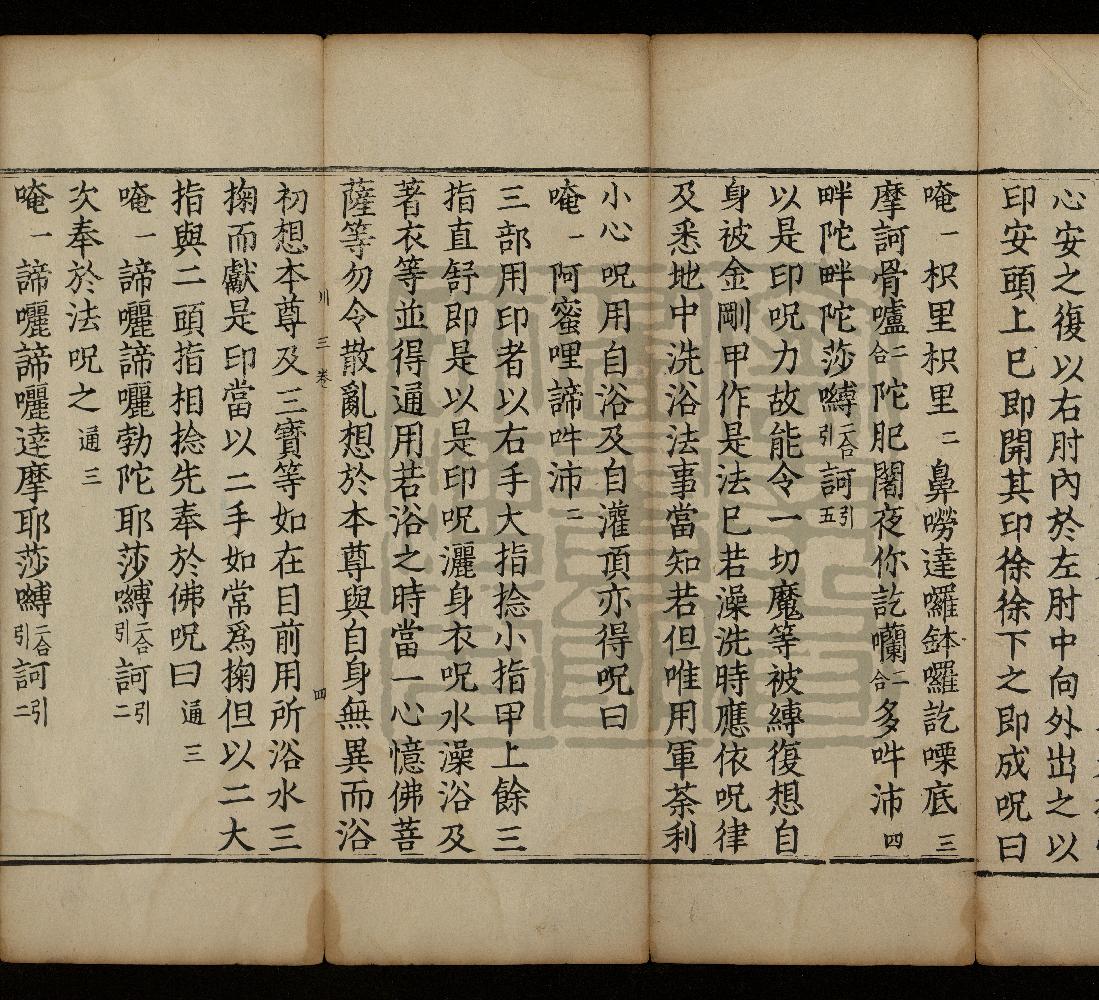 心安之復以右肘內於左肘中向外出之以
印安頭上已即開其印徐徐下之即成呪曰
唵一枳里枳里二鼻嘮達囉鉢囉訖㗚底三
摩訶骨嚧二合陀肥闍夜你訖囒二合多吽沛四
畔陀畔陀莎嚩二合引訶引五
以是印呪力故能令一切魔等被縛復想自
身被金剛甲作是法已若澡洗時應依呪律
及悉地中洗浴法事當知若但唯用軍荼利
小心呪用自浴及自灌頂亦得呪曰
唵一阿蜜哩諦吽沛二
三部用印者以右手大指捻小指甲上餘三
指直舒即是以是印呪灑身衣呪水澡浴及
著衣等並得通用若浴之時當一心憶佛菩
薩等勿令散亂想於本尊與自身無異而浴
川三 卷 四
初想本尊及三寶等如在目前用所浴水三
掬而獻是印當以二手如常爲掬但以二大
指與二頭指相捻先奉於佛呪曰通三
唵一諦囇諦囇勃陀耶莎嚩二合引訶引二
次奉於法呪之通三
唵一諦囇諦囇達摩耶莎嚩二合引訶引二